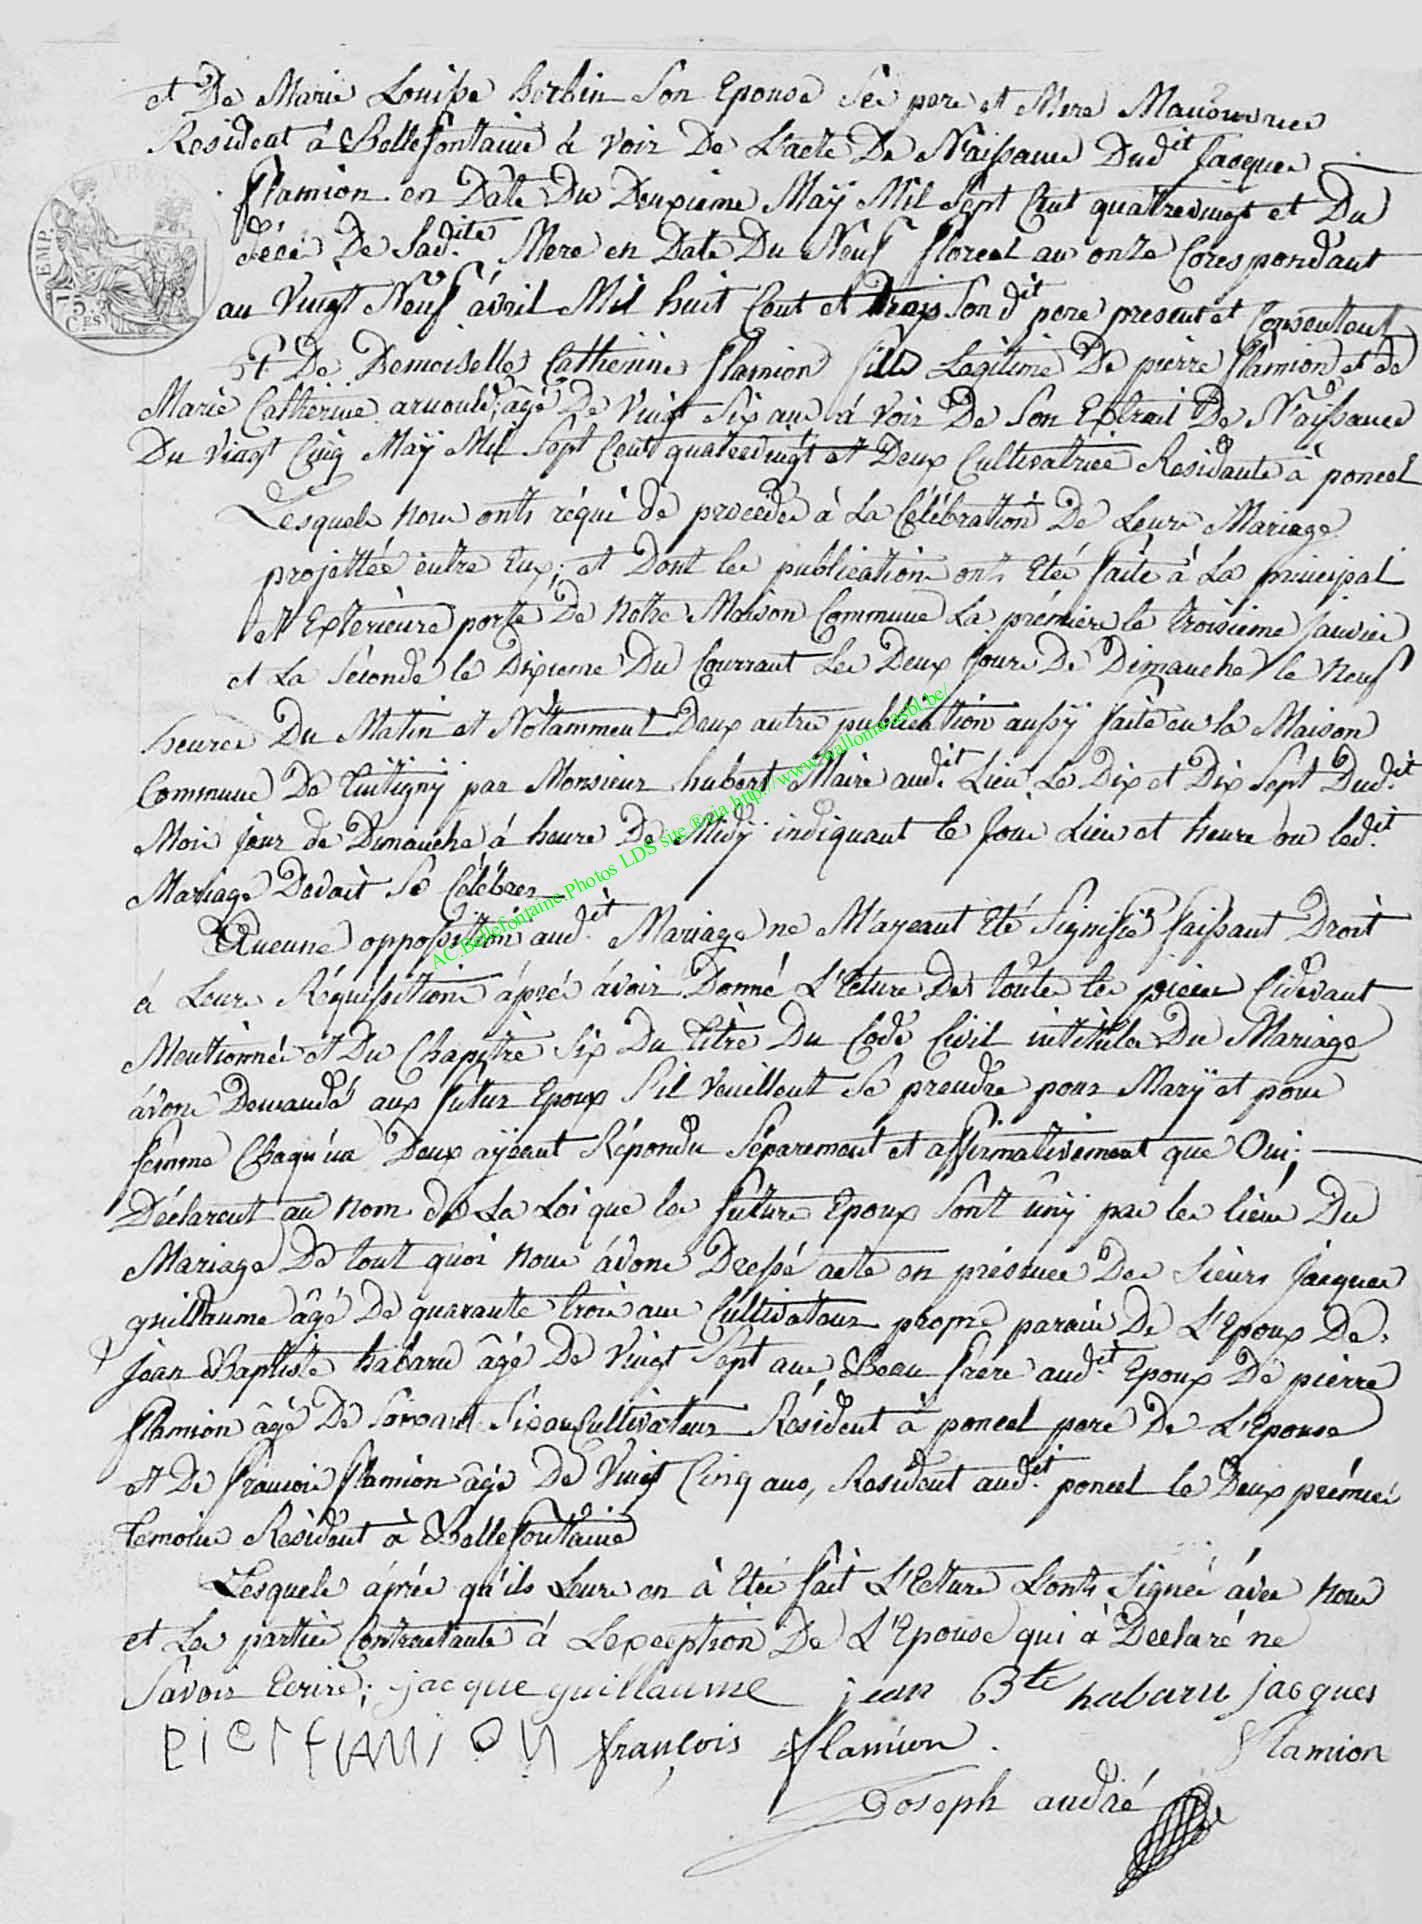 et De Marie Louisse Borbin Son Epouse Ses pere et Mere Manouvriers
Resident à Bellefontaine à Voir De L'acte De Naissance Dudit Jacques
flamion en Date Du Deuxieme Maÿ Mil Sept Cent quatrevingt et Du
déce De Sadite Mere en Date Du Neuf floreal an onze Corespondant
au Vingt Neuf avril Mil huit Cent et trois Son dit pere present et Consentent
Et De Demoiselle Catherine flamion fille Legitime De pierre flamion et de
Marie Catherine arnould, âgé De Vingt Six ans à Voir De Son Extrait De Naissance
Du Vingt Cinq Maÿ Mil Sept Cent quatrevingt et Deux Cultivatrice Residante à poncel
Lesquels Nous onts réqui de procéder à La Célébration De Leurs Mariage
projettée entre Eux; et Dont les publications onts Eté faite à La principal
et Extérieure porte De Notre Maison Commune La prémiere le troisieme janvier
et La Séconde le Dixieme Du Courrant Les Deux jours De Dimanche le neuf
heures Du Matin et Notamment Deux autre publication aussÿ faite en la Maison
Commune De tintignÿ par Monsieur hubert Maire audit Lieu Le Dix et Dix Sept Dudit
Mois jour de Dimanche à heure De Midÿ indiquant le Jour Lieu et heure ou ledit
Mariage Devait Se Célébrer
Aucune opposition audit Mariage ne M'ayeant Eté Signifié faissant Droit
à Leurs Réquisitions áprés ávoir Donné L'Ecture De toute les pieces Cidevant
Mentionnés et Du Chapitre Six Du titre Du Code Civil intitule Du Mariage
ávons Demandé aux futur Epoux S'il Veuillent Se prendre pour Marÿ et pour
femme Chaqu'un Deux aÿeant Répondu Séparement et affirmativement que Oui;
Déclarent au nom de La Loi que les future Epoux Sont ûnÿ par les liens Du
Mariage De tout quoi Nous ávons Dressé acte en présence Des Sieurs Jacques
guillaume âgé De quarante trois ans Cultivateur propre parain De L'Epoux De
Jean Baptiste habaru âgé De Vingt Sept ans, Beau frére audit Epoux De pierre
flamion âgé De Soixante Six ans Cultivateur Résident à poncel pere De L'Epouse
et De francois flamion âgé De Vingt Cinq ans, Resident audit poncel le Deux prémier
temoins Resident à Bellefontaine
Lesquels áprés qu'ils Leurs en à Eté fait L'Ecture L'onts Signé ávec nous
et La partie Contractante á L'exception De L'Epouse qui à Declaré ne
Sávoir Ecrire; jacque guillaume jean Bte habaru jacques
PIER FLAMION françois flamion. flamion
Joseph andré
EMP.
75
CES
AC.Bellefontaine.Photos LDS site ® via http://www.walloniaasbl.be/